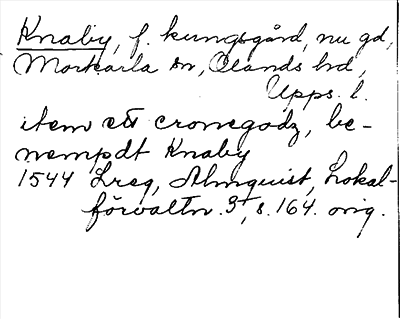 Knaby, f. kungsgård, nu gd,
Morkarla sn, Olands hd,
Upps. l.
item ett cronegodz, be-
nempdt Knaby
1544 Lreg, Almquist, Lokal-
förvaltn. 3, s. 164. orig.